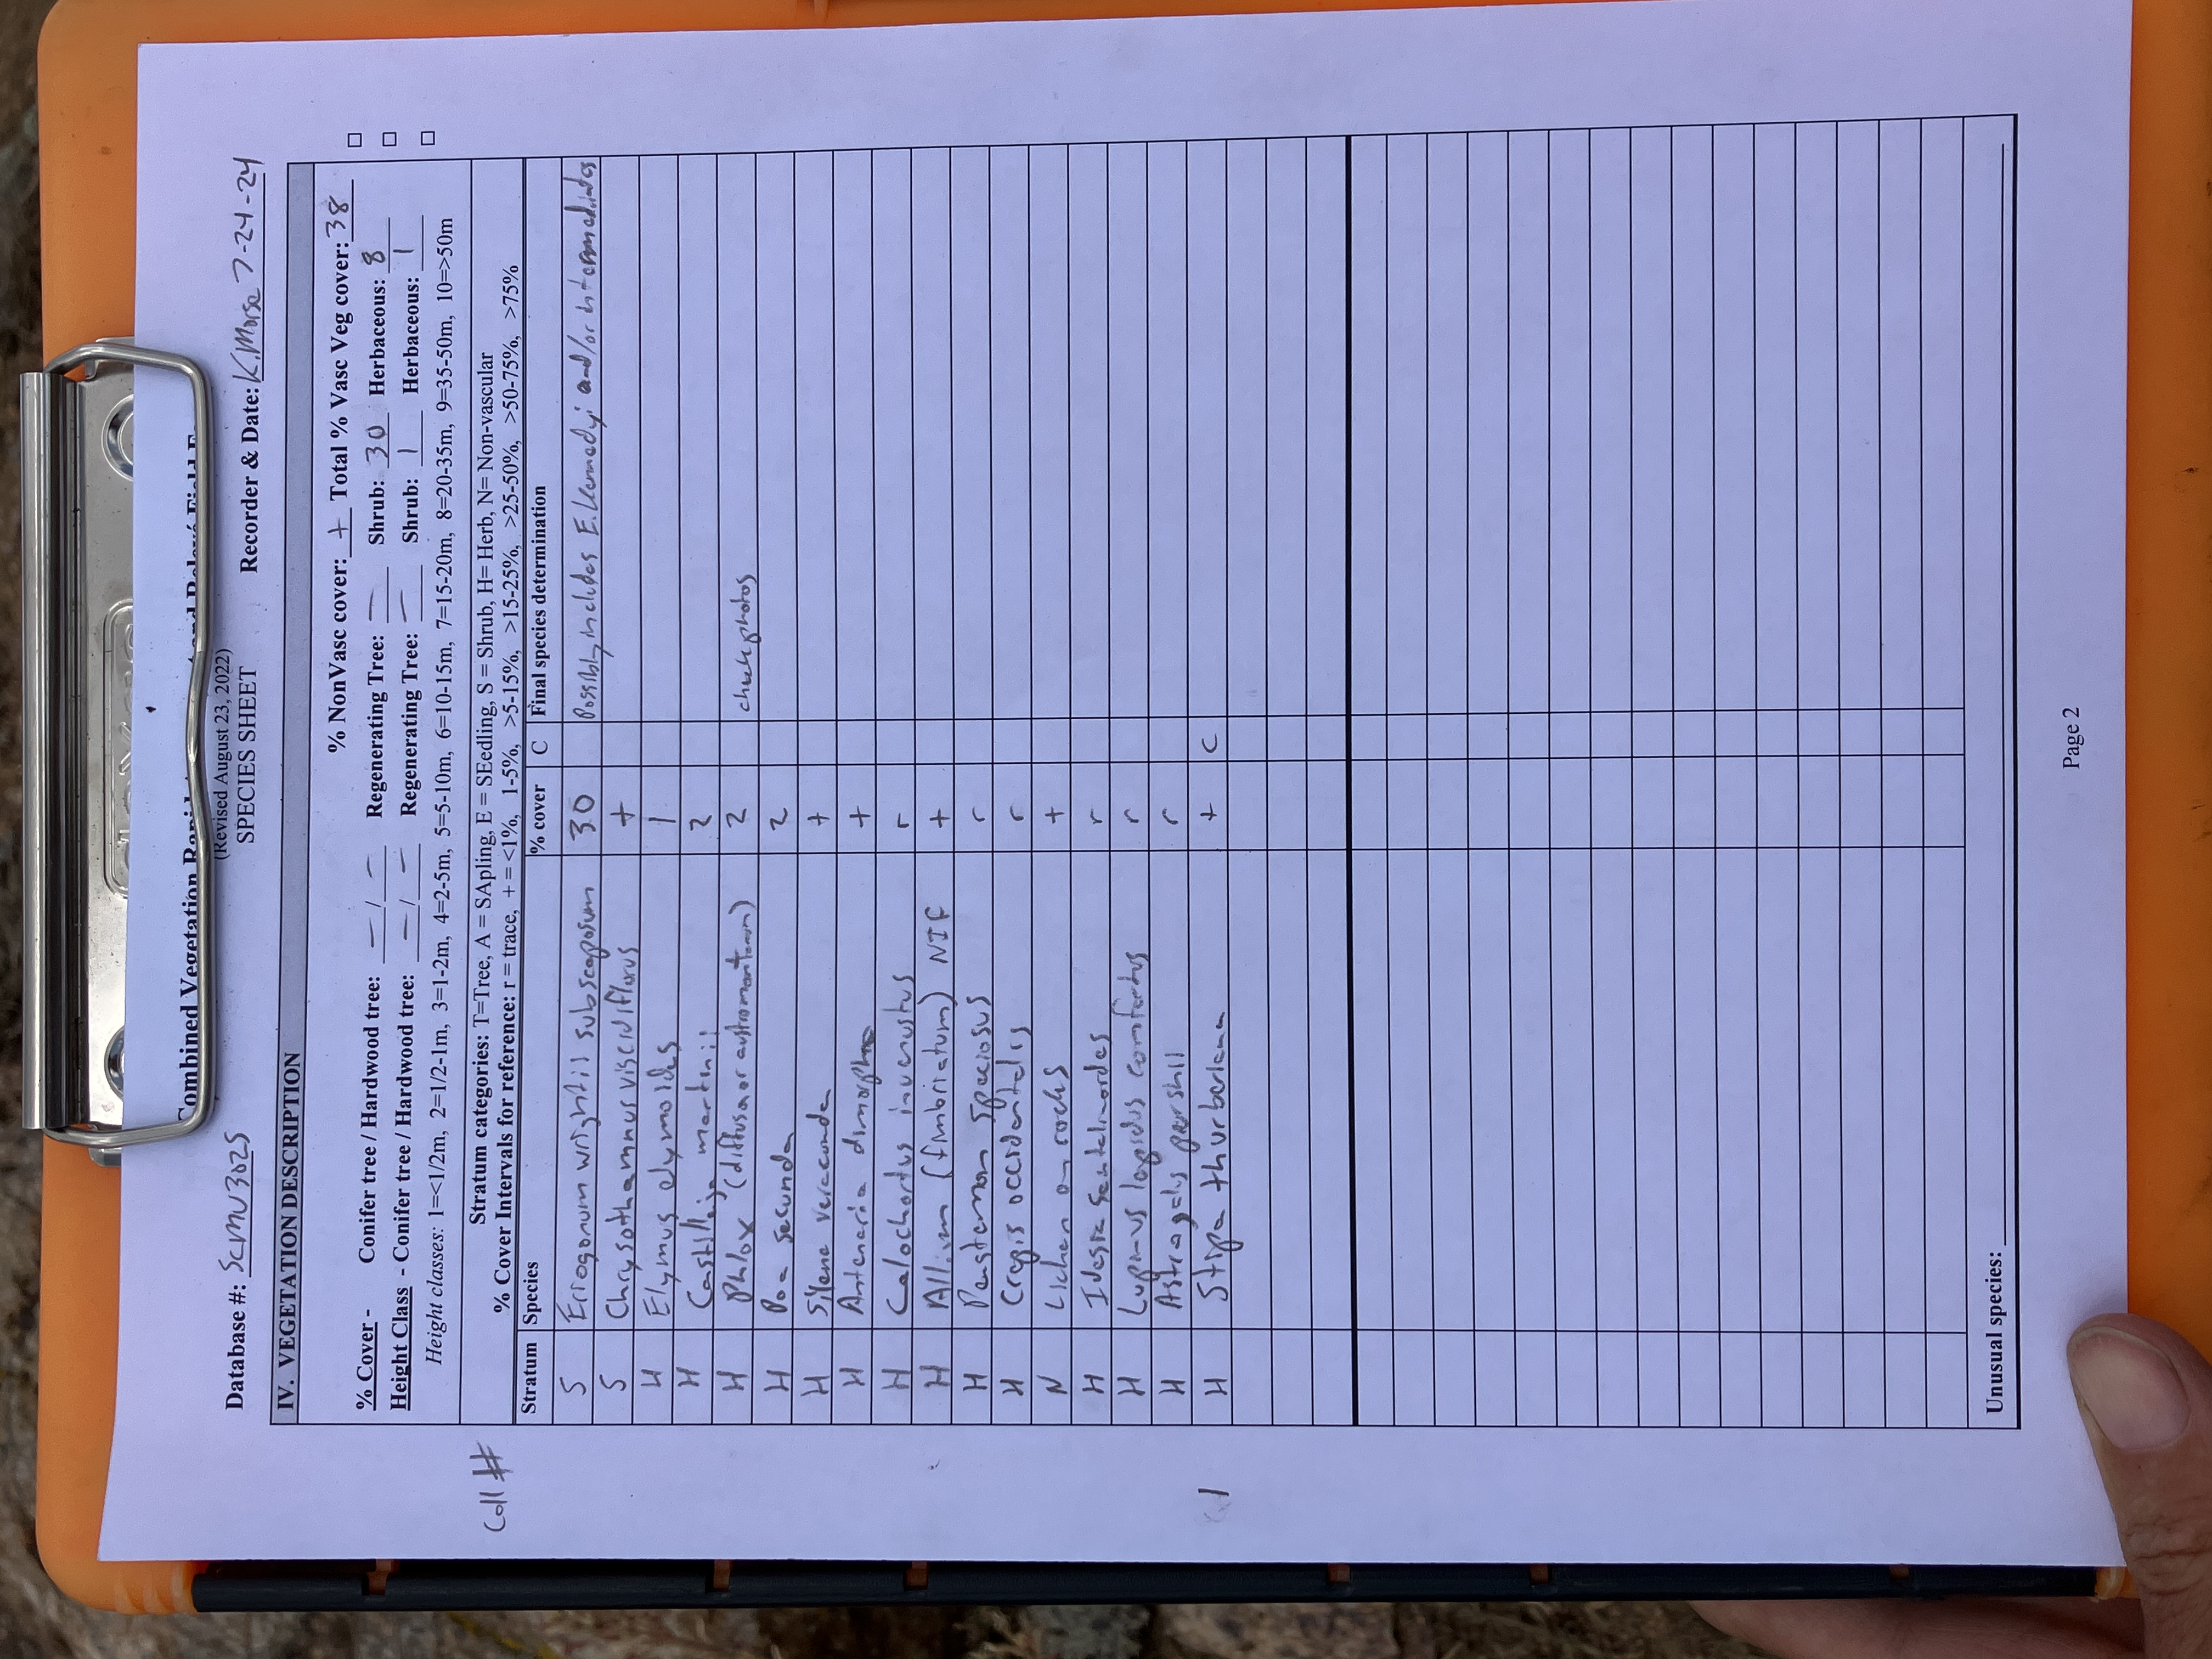 Combined Vegetation
(Revised August 23, 2022)
SPECIES SHEET
Database #: Scmu3025 Recorder & Date: K.Morse 7-24-24
IV. VEGETATION DESCRIPTION
% NonVasc cover: + Total % Vasc Veg cover: 38 □
% Cover - Conifer tree / Hardwood tree: - / - Regenerating Tree: - Shrub: 30 Herbaceous: 8 □
Height Class - Conifer tree / Hardwood tree: - / - Regenerating Tree: - Shrub: 1 Herbaceous: 1 □
Height classes: 1=<1/2m, 2=1/2-1m, 3=1-2m, 4=2-5m, 5=5-10m, 6=10-15m, 7=15-20m, 8=20-35m, 9=35-50m, 10=>50m
Stratum categories: T=Tree, A = SApling, E = SEedling, S = Shrub, H= Herb, N= Non-vascular
Coll #
% Cover Intervals for reference: r = trace, + = <1%, 1-5%, >5-15%, >15-25%, >25-50%, >50-75%, >75%
Stratum Species % cover C Final species determination
S Eriogonum wrightii subscaposum 30 Possibly includes E. kennedyi and/or intermediates
S Chrysothamnus viscidiflorus +
H Elymus elymoides 1
H Castilleja martinii 2
H Phlox (diffusa or austromontanum) 2 check photos
H Poa secunda 2
H Silene verecunda +
H Antenaria dimorpha +
H Calochortus invenustus r
H Allium (fimbriatum) NIF +
H Penstemon speciosus r
H Crepis occidentalis r
N Lichen on rocks +
H Ivesia santalinoides r
H Lupinus lepidus confertus r
H Astragalus purshii r
1 H Stipa thurberiana + C
Unusual species:
Page 2